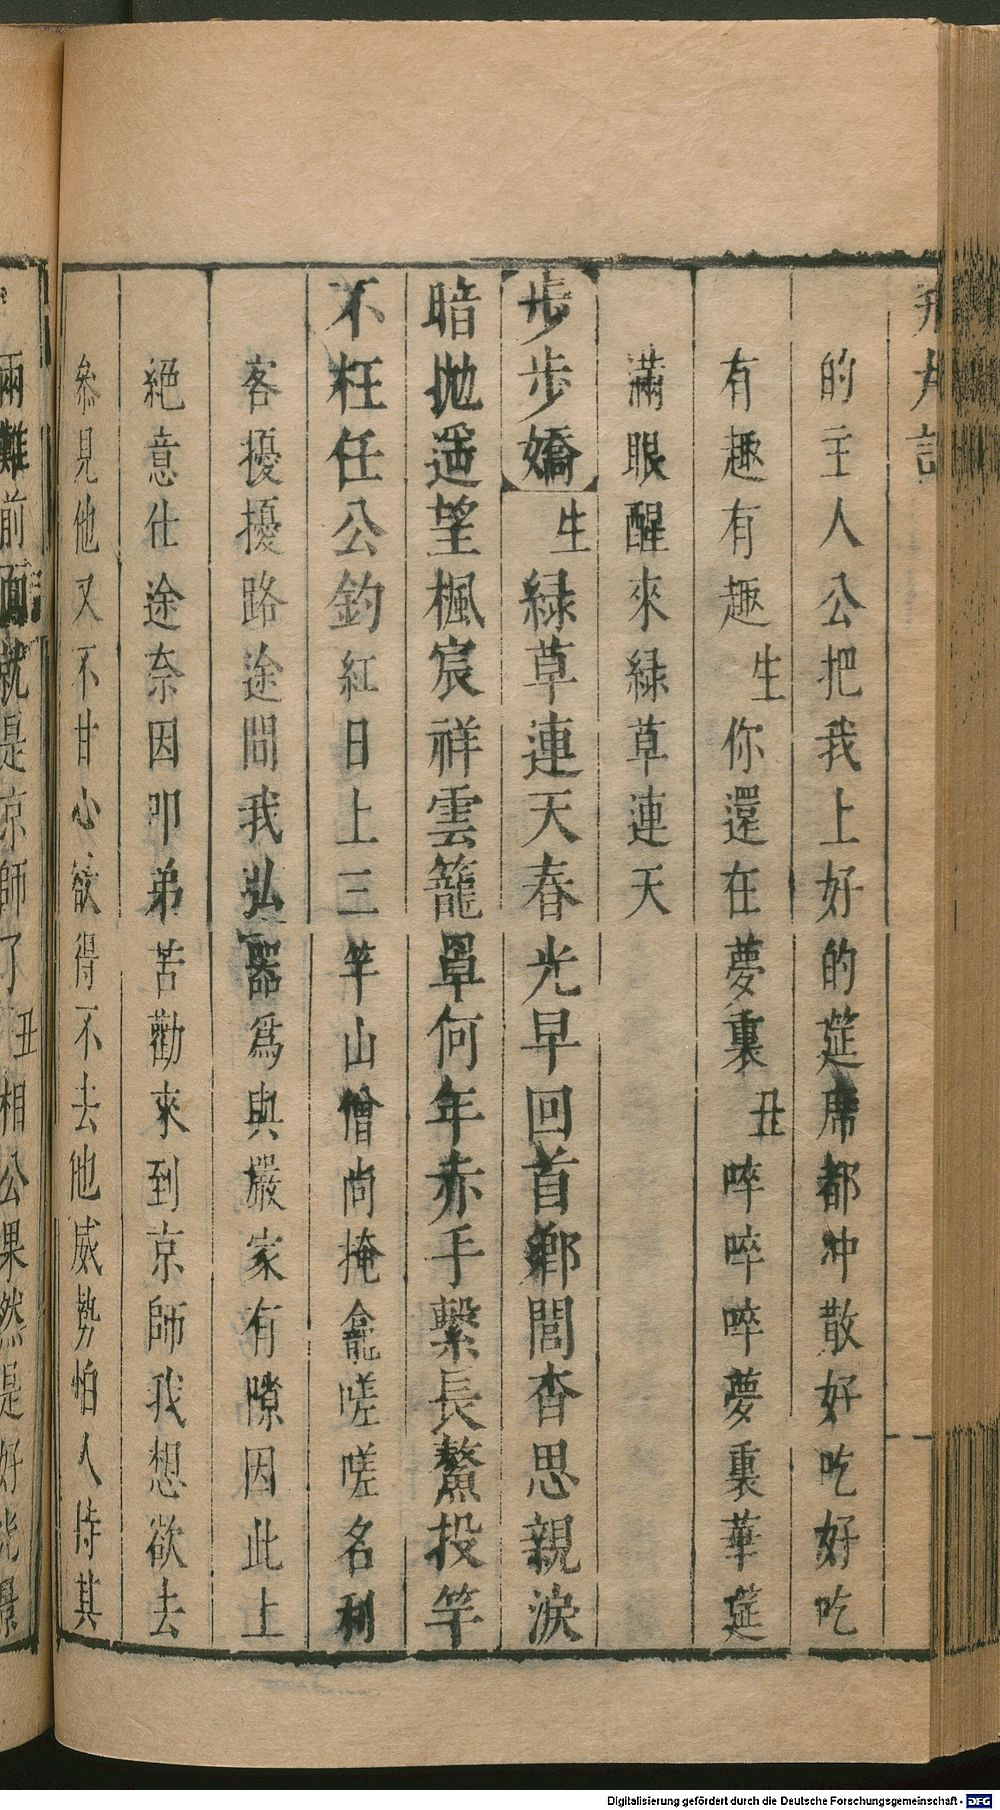 的主人公把我上好的筵席都冲散好吃好吃
有趣有趣生你還在夢裏丑啐啐啐夢裏華筵
滿眼醒來緑草連天
步步嬌生緑草連天春光早回首鄉閭杳思親淚
暗抛遥望楓宸祥雲籠罩何年赤手繫長鰲投竿
不枉任公釣紅日上三竿山僧尚掩龕嗟嗟名利
客擾擾路途問我弘器爲與嚴家有隙因此上
絕意仕途奈因卭弟苦勸來到京師我想欲去
叅見他又不甘心欲得不去他威勢怕人待其
兩難前面就是京師了丑相公果然是好光景
Digitalisierung gefördert durch die Deutsche Forschungsgemeinschaft - DFG